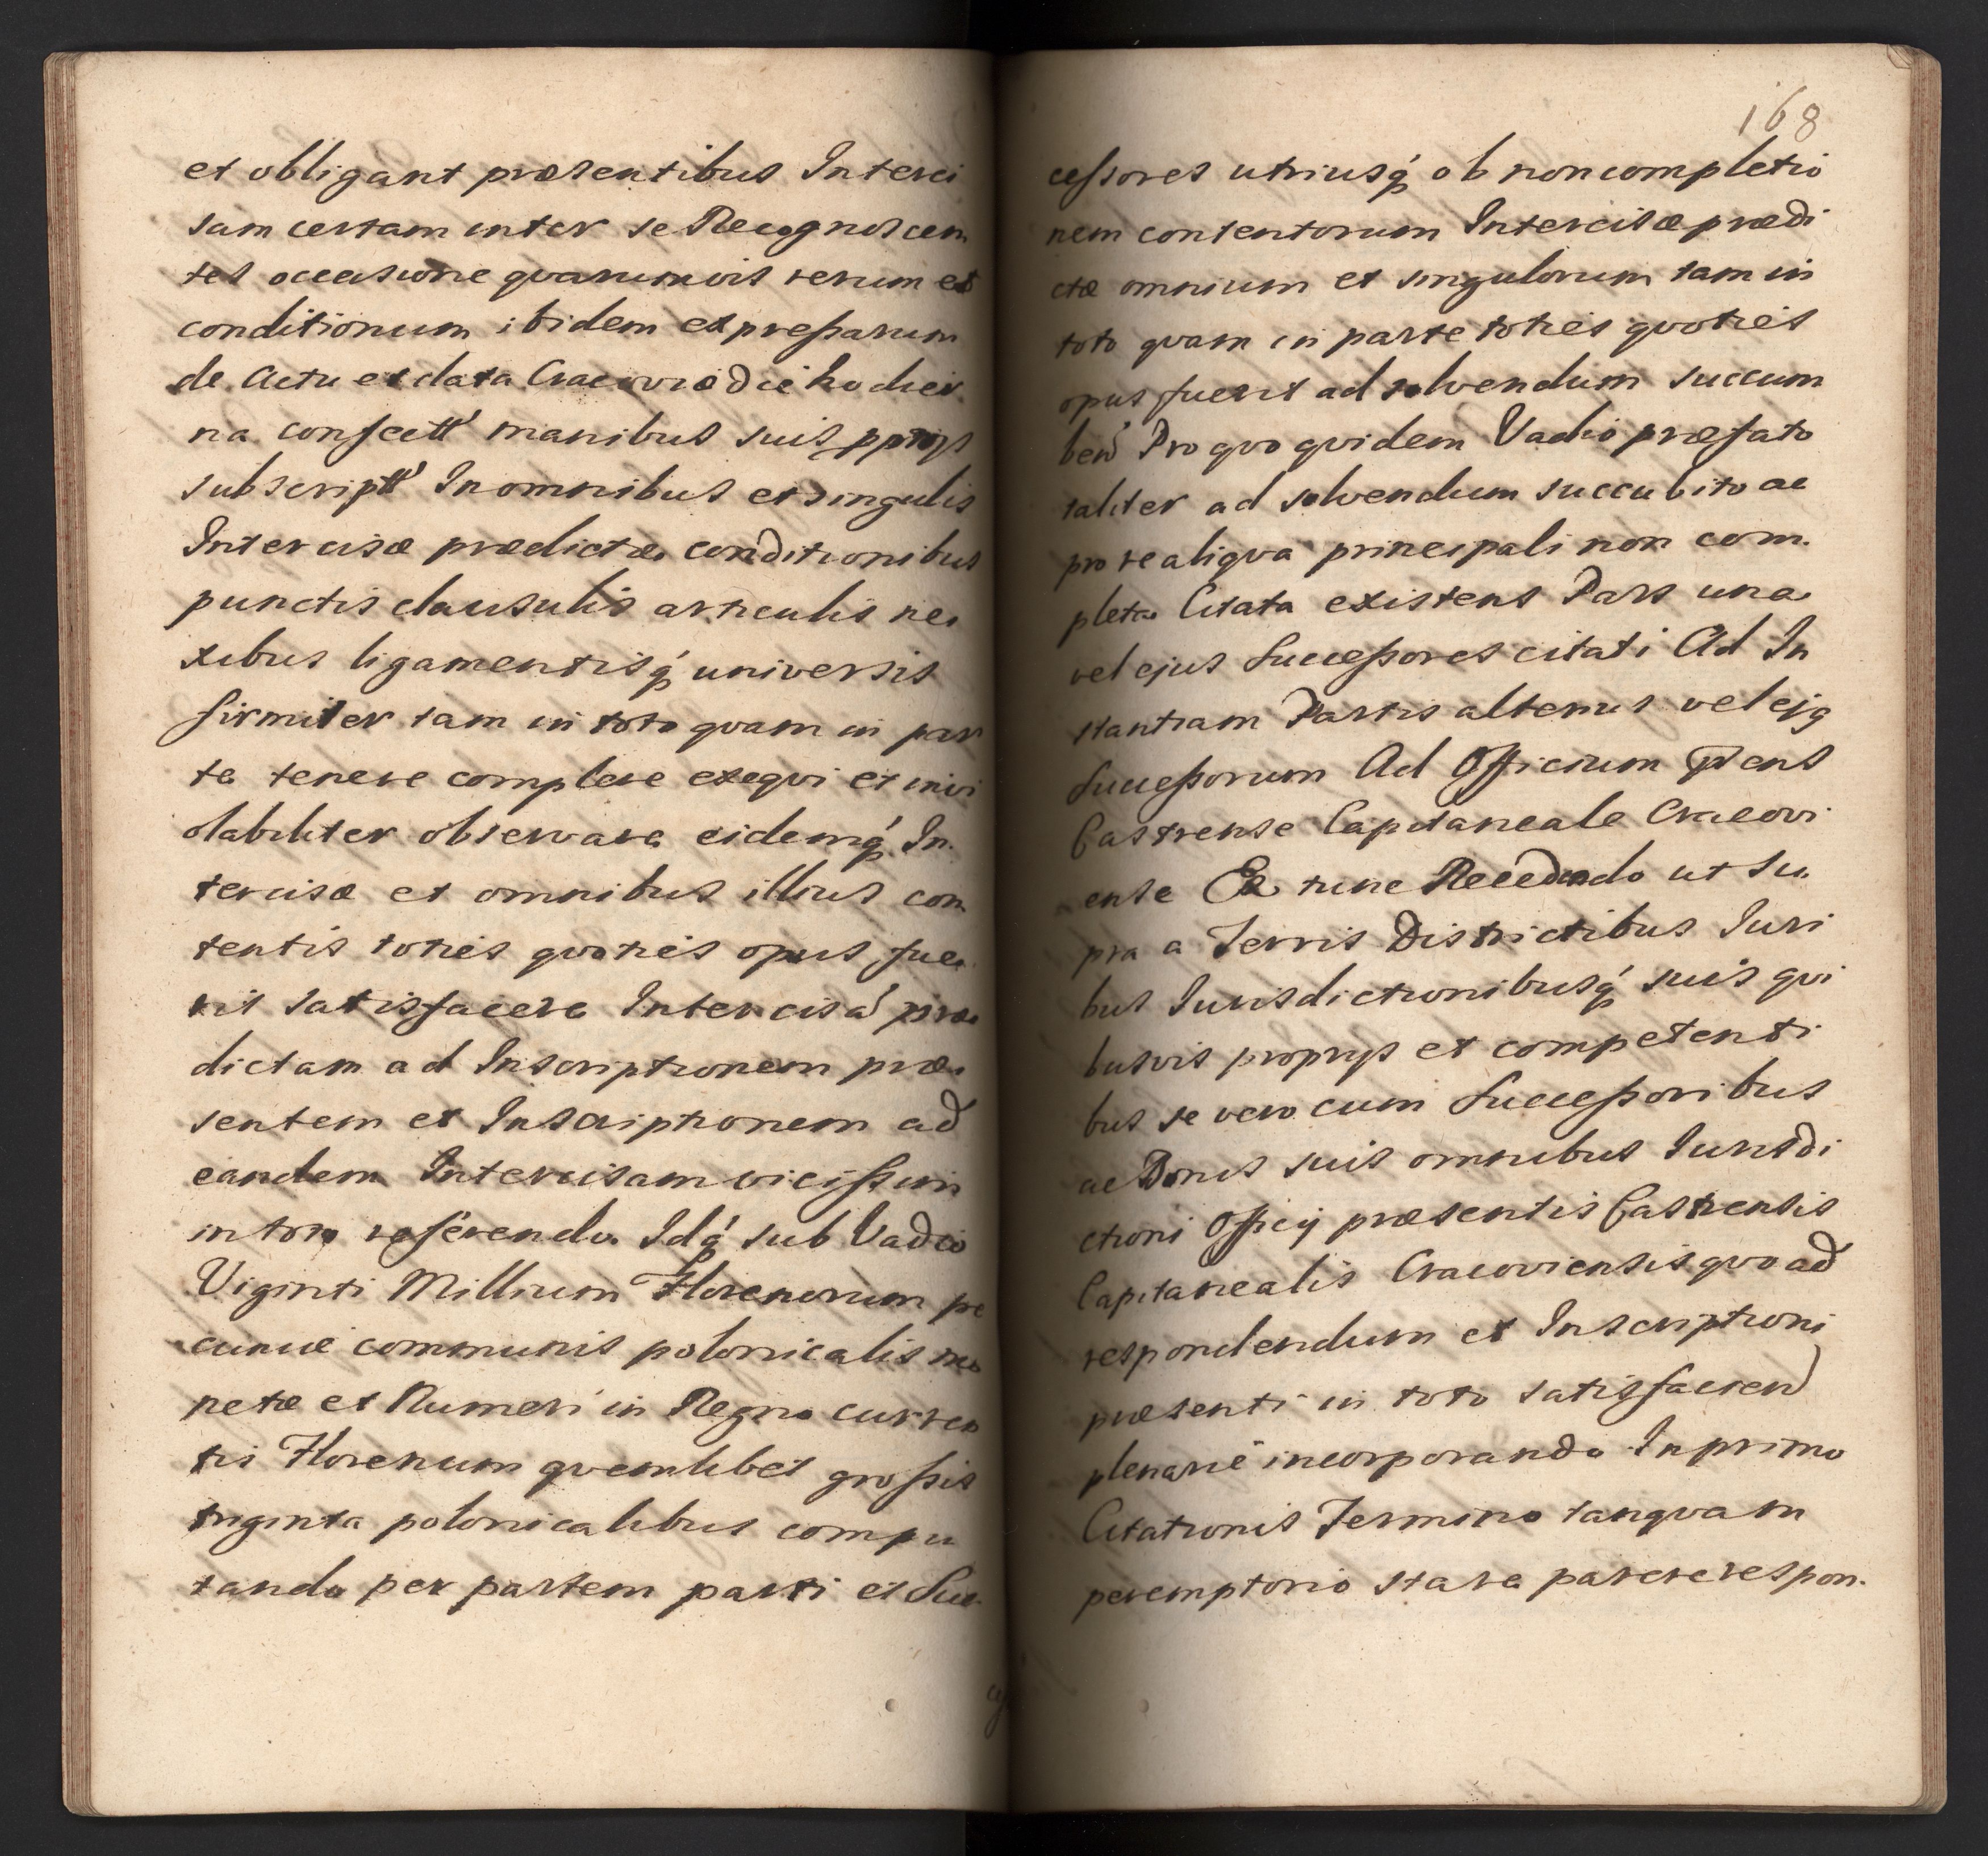 et obligant præsentibus Interci
sam certam inter se Recognoscen
tes occasione qvarumvis rerum et
conditionum ibidem expressarum
de Actu et data Cracoviæ die hodier
na confectt manibus suis pprijs
subscriptt In omnibus et singulis
Intercisæ prædictæ conditionibus
punctis clausulis articulis ne
xibus ligamentisq́ universis
firmiter tam in toto qvam in par
te tenere complere exeqvi et invi
olabiliter observare eidemq́ In
tercisæ et omnibus illius con
tentis toties qvoties opus fue
rit satisfacere Intercisā præ
dictam ad Inscriptionem præ
sentem et Inscriptionem ad
eandem Intercisam vicissim
in toto referendo Idq́ sub Vadio
Viginti Millium Florenorum pe
cuniæ communis polonicalis mo
netæ et Numeri in Regno curren
tis Florenum qvemlibet grossis
triginta polonicalibus compu
tando per partem parti et Suc
168
cessores utriusq́ ob non completio
nem contentorum Intercisæ prædi
ctæ omnium et singulorum tam in
toto qvam in parte toties qvoties
opus fuerit ad solvendum succum
ben Pro qvo qvidem Vadio præfato
taliter ad solvendum succubito ac
pro re aliqva principali non com
pleta Citata existens Pars una
vel ejus Successores citati Ad In
stantiam Partis alterius vel ejq
Successorum Ad Officium pns
Castrense Capitaneale Cracovi
ense Ex tunc Recedendo ut su
pra a Terris Districtibus Iuri
bus Iurisdictionibusq́ suis qvi
busvis proprijs et competenti
bus se vero cum Successoribus
ac Bonis suis omnibus Iurisdi
ctioni Officij præsentis Castrensis
Capitanealis Cracoviensis qvo ad
respondendum et Inscriptioni
præsenti in toto satisfacien
plenarie incorporando In primo
Citationis Termino tanqvam
peremptorio stare parere respon